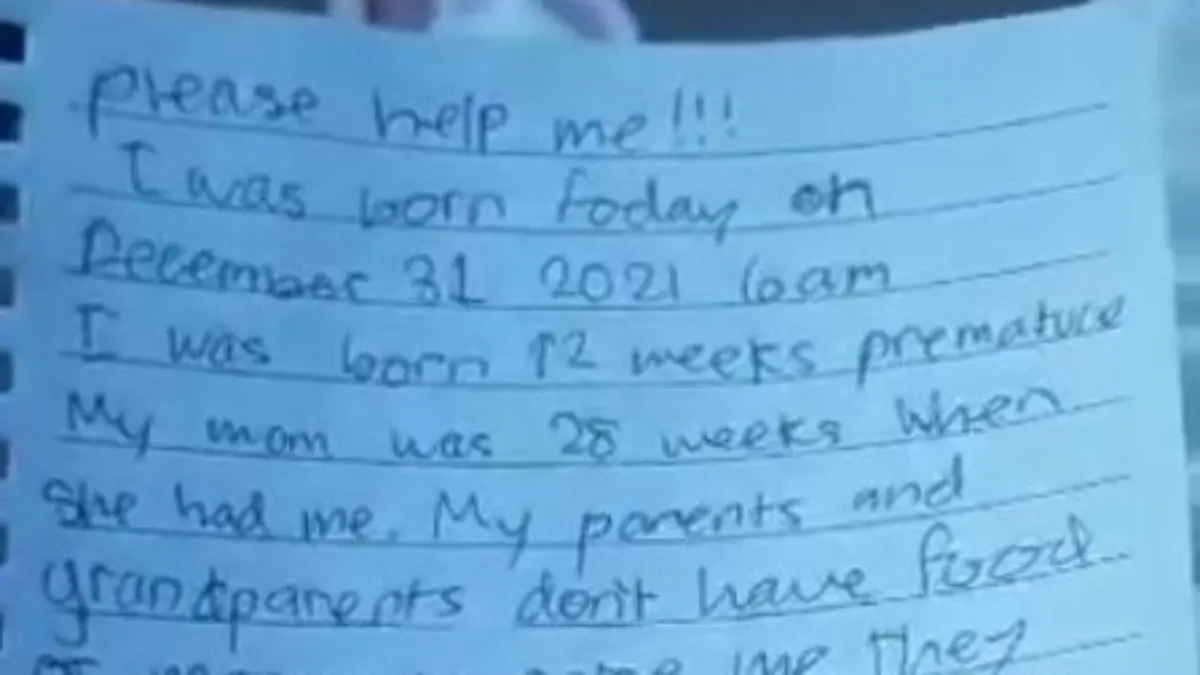 please help me!!!
I was born today on
December 31 2021 6am
I was born 12 weeks premature
My mom was 28 weeks when
she had me. My parents and
grandparents don't have food
me they